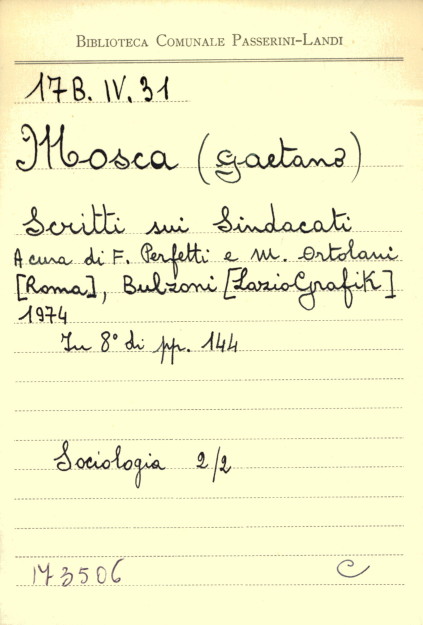 BIBLIOTECA COMUNALE PASSERINI-LANDI
17B. IV. 31
Mosca (Gaetano)
Scritti sui Sindacati
A cura di F. Perfetti e M. Ortolani
[Roma], Bulzoni [LazioGrafik]
1974
In 8° di pp. 144
Sociologia 2/2
173506 C